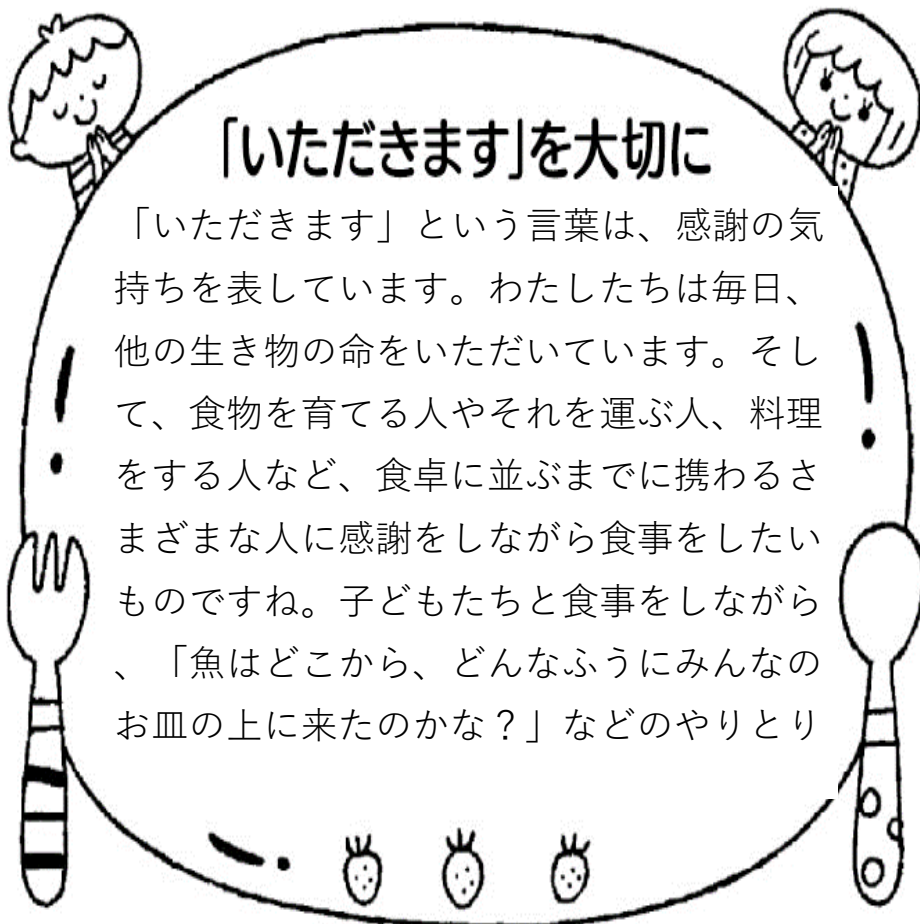 「いただきます」を大切に
「いただきます」という言葉は、感謝の気
持ちを表しています。わたしたちは毎日、
他の生き物の命をいただいています。そし
て、食物を育てる人やそれを運ぶ人、料理
をする人など、食卓に並ぶまでに携わるさ
まざまな人に感謝をしながら食事をしたい
ものですね。子どもたちと食事をしながら
、「魚はどこから、どんなふうにみんなの
お皿の上に来たのかな？」などのやりとり